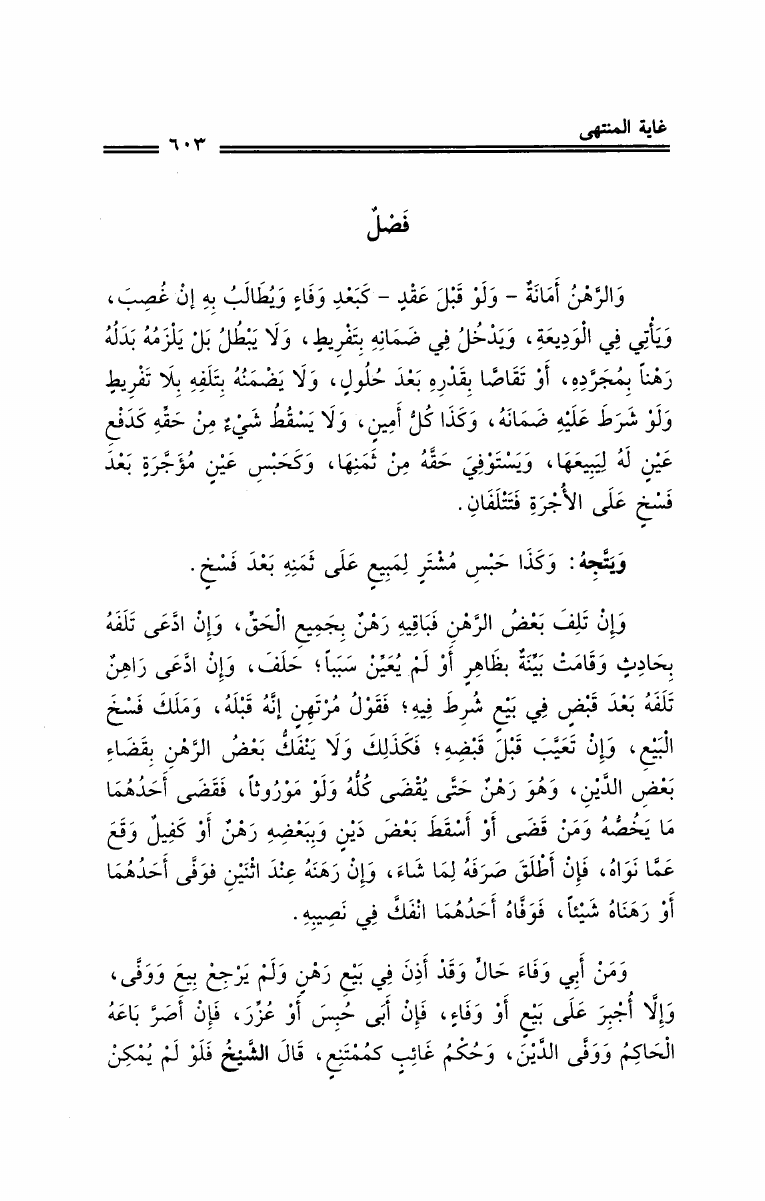 غاية المنتهى
٦٠٣
فَصْلٌ
وَالرَّهْنُ أَمَانَةٌ - وَلَوْ قَبْلَ عَقْدٍ - كَبَعْدِ وَفَاءٍ وَيُطَالَبُ بِهِ إنْ غُصِبَ،
وَيَأْتِي فِي الْوَدِيعَةِ، وَيَدْخُلُ فِي ضَمَانِهِ بِتَفْرِيطٍ، وَلَا يَبْطُلُ بَلْ يَلْزَمُهُ بَدَلُهُ
رَهْناً بِمُجَرَّدِهِ، أَوْ تَقَاصَّا بِقَدْرِهِ بَعْدَ حُلُولٍ، وَلَا يَضْمَنُهُ بِتَلَفِهِ بِلَا تَفْرِيطٍ
وَلَوْ شَرَطَ عَلَيْهِ ضَمَانَهُ، وَكَذَا كُلُّ أَمِينٍ، وَلَا يَسْقُطُ شَيْءٌ مِنْ حَقِّهِ كَدَفْعِ
عَيْنٍ لَهُ لِيَبِيعَهَا، وَيَسْتَوْفِيَ حَقَّهُ مِنْ ثَمَنِهَا، وَكَحَبْسِ عَيْنٍ مُؤَجَّرَةٍ بَعْدَ
فَسْخٍ عَلَى الأُجْرَةِ فَتَتْلَفَانِ.
وَيَتَّجِهُ: وَكَذَا حَبْسِ مُشْتَرٍ لِمَبِيعٍ عَلَى ثَمَنِهِ بَعْدَ فَسْخٍ.
وَإِنْ تَلِفَ بَعْضُ الرَّهْنِ فَبَاقِيهِ رَهْنٌ بِجَمِيعِ الْحَقِّ، وَإِنْ ادَّعَى تَلَفَهُ
بِحَادِثٍ وَقَامَتْ بَيِّنَةٌ بِظَاهِرٍ أَوْ لَمْ يُعَيِّنْ سَبَباً؛ حَلَفَ، وَإِنْ ادَّعَى رَاهِنٌ
تَلَفَهُ بَعْدَ قَبْضٍ فِي بَيْعٍ شُرِطَ فِيهِ؛ فَقَوْلُ مُرْتَهِنٍ إنَّهُ قَبْلَهُ، وَمَلَكَ فَسْخَ
الْبَيْعِ، وَإِنْ تَعَيَّبَ قَبْلَ قَبْضِهِ؛ فَكَذَلِكَ وَلَا يَنْفَكُّ بَعْضُ الرَّهْنِ بِقَضَاءِ
بَعْضِ الدَّيْنِ، وَهُوَ رَهْنٌ حَتَّى يُقْضَى كُلُّهُ وَلَوْ مَوْرُوثاً، فَقَضَى أَحَدُهُمَا
مَا يَخُصُّهُ وَمَنْ قَضَى أَوْ أَسْقَطَ بَعْضَ دَيْنٍ وَبِبَعْضِهِ رَهْنٌ أَوْ كَفِيلٌ وَقَعَ
عَمَّا نَوَاهُ، فَإِنْ أَطْلَقَ صَرَفَهُ لِمَا شَاءَ، وَإِنْ رَهَنَهُ عِنْدَ اثْنَيْنِ فوَفَّى أَحَدُهُمَا
أَوْ رَهَنَاهُ شَيْئاً، فَوَفَّاهُ أَحَدُهُمَا انْفَكَّ فِي نَصِيبِهِ.
وَمَنْ أَبِي وَفَاءَ حَالٍّ وَقَدْ أَذِنَ فِي بَيْعِ رَهْنٍ وَلَمْ يَرْجِعْ بِيعَ وَوَفَّى،
وَإِلَّا أُجْبِرَ عَلَى بَيْعٍ أَوْ وَفَاءٍ، فَإِنْ أَبَى حُبِسَ أَوْ عُزِّرَ، فَإِنْ أَصَرَّ بَاعَهُ
الْحَاكِمُ وَوَفَّى الدَّيْنَ، وَحُكْمُ غَائِبٍ كمُمْتَنِعٍ، قَالَ الشَّيْخُ فَلَوْ لَمْ يُمْكِنْ